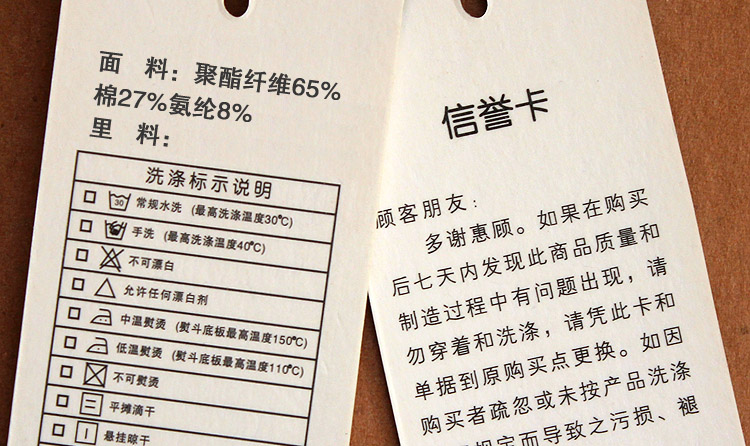 面 料：聚酯纤维65%
棉27%氨纶8%
里 料：
洗涤标示说明
30 常规水洗（最高洗涤温度30℃）
手洗（最高洗涤温度40℃）
不可漂白
允许任何漂白剂
中温熨烫（熨斗底板最高温度150℃）
低温熨烫（熨斗底板最高温度110℃）
不可熨烫
平摊滴干
悬挂晾干
信誉卡
顾客朋友：
多谢惠顾。如果在购买
后七天内发现此商品质量和
制造过程中有问题出现，请
勿穿着和洗涤，请凭此卡和
单据到原购买点更换。如因
购买者疏忽或未按产品洗涤
规定而导致之污损、褪